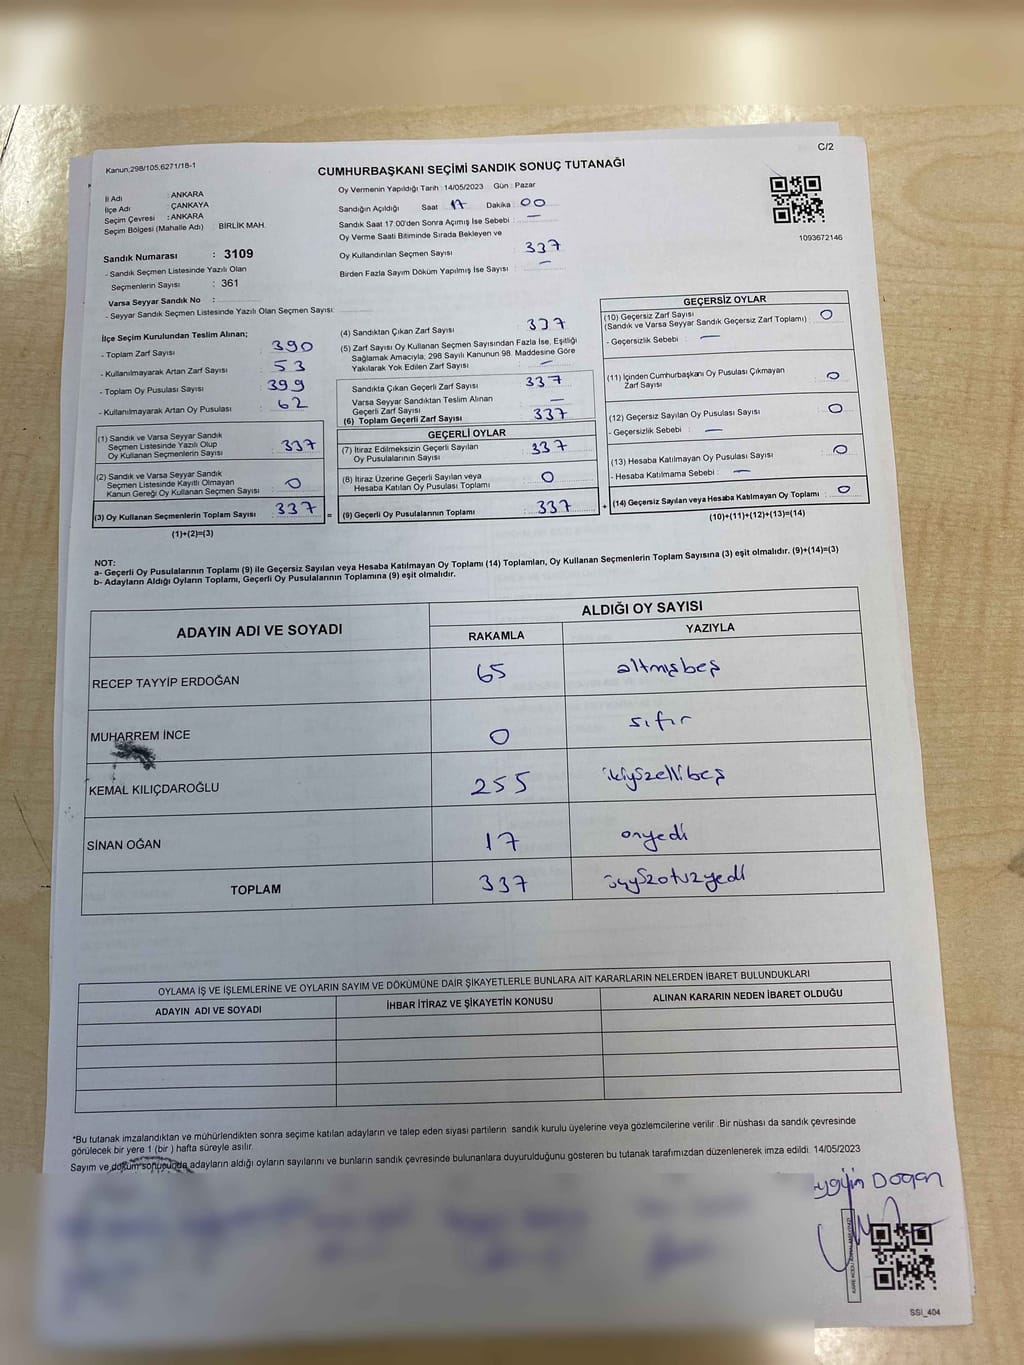 Kanun;298/105,6271/18-1
C/2
CUMHURBAŞKANI SEÇİMİ SANDIK SONUÇ TUTANAĞI
İl Adı : ANKARA
İlçe Adı : ÇANKAYA
Seçim Çevresi : ANKARA
Seçim Bölgesi (Mahalle Adı) : BİRLİK MAH.
Oy Vermenin Yapıldığı Tarih : 14/05/2023 Gün : Pazar
Sandığın Açıldığı Saat 17 Dakika : 00
Sandık Saat 17:00'den Sonra Açılmış İse Sebebi : —
Oy Verme Saati Bitiminde Sırada Bekleyen ve
Oy Kullandırılan Seçmen Sayısı : 337
Birden Fazla Sayım Döküm Yapılmış İse Sayısı : —
1093672146
Sandık Numarası : 3109
- Sandık Seçmen Listesinde Yazılı Olan
Seçmenlerin Sayısı : 361
Varsa Seyyar Sandık No :
- Seyyar Sandık Seçmen Listesinde Yazılı Olan Seçmen Sayısı:
İlçe Seçim Kurulundan Teslim Alınan;
- Toplam Zarf Sayısı : 390
- Kullanılmayarak Artan Zarf Sayısı : 53
- Toplam Oy Pusulası Sayısı : 399
- Kullanılmayarak Artan Oy Pusulası : 62
(1) Sandık ve Varsa Seyyar Sandık
Seçmen Listesinde Yazılı Olup
Oy Kullanan Seçmenlerin Sayısı : 337
(2) Sandık ve Varsa Seyyar Sandık
Seçmen Listesinde Kayıtlı Olmayan
Kanun Gereği Oy Kullanan Seçmen Sayısı : 0
(3) Oy Kullanan Seçmenlerin Toplam Sayısı : 337
(1)+(2)=(3)
(4) Sandıktan Çıkan Zarf Sayısı : 337
(5) Zarf Sayısı Oy Kullanan Seçmen Sayısından Fazla İse, Eşitliği
Sağlamak Amacıyla, 298 Sayılı Kanunun 98. Maddesine Göre
Yakılarak Yok Edilen Zarf Sayısı : —
Sandıkta Çıkan Geçerli Zarf Sayısı : 337
Varsa Seyyar Sandıktan Teslim Alınan
Geçerli Zarf Sayısı : —
(6) Toplam Geçerli Zarf Sayısı : 337
GEÇERLİ OYLAR
(7) İtiraz Edilmeksizin Geçerli Sayılan
Oy Pusulalarının Sayısı : 337
(8) İtiraz Üzerine Geçerli Sayılan veya
Hesaba Katılan Oy Pusulası Toplamı : 0
= (9) Geçerli Oy Pusulalarının Toplamı : 337
GEÇERSİZ OYLAR
(10) Geçersiz Zarf Sayısı : 0
(Sandık ve Varsa Seyyar Sandık Geçersiz Zarf Toplamı)
- Geçersizlik Sebebi : —
(11) İçinden Cumhurbaşkanı Oy Pusulası Çıkmayan
Zarf Sayısı : 0
(12) Geçersiz Sayılan Oy Pusulası Sayısı : 0
- Geçersizlik Sebebi : —
(13) Hesaba Katılmayan Oy Pusulası Sayısı : 0
- Hesaba Katılmama Sebebi : —
+ (14) Geçersiz Sayılan veya Hesaba Katılmayan Oy Toplamı : 0
(10)+(11)+(12)+(13)=(14)
NOT:
a- Geçerli Oy Pusulalarının Toplamı (9) ile Geçersiz Sayılan veya Hesaba Katılmayan Oy Toplamı (14) Toplamları, Oy Kullanan Seçmenlerin Toplam Sayısına (3) eşit olmalıdır. (9)+(14)=(3)
b- Adayların Aldığı Oyların Toplamı, Geçerli Oy Pusulalarının Toplamına (9) eşit olmalıdır.
ADAYIN ADI VE SOYADI
ALDIĞI OY SAYISI
RAKAMLA YAZIYLA
RECEP TAYYİP ERDOĞAN 65 altmışbeş
MUHARREM İNCE 0 sıfır
KEMAL KILIÇDAROĞLU 255 ikiyüzellibeş
SİNAN OĞAN 17 onyedi
TOPLAM 337 üçyüzotuzyedi
OYLAMA İŞ VE İŞLEMLERİNE VE OYLARIN SAYIM VE DÖKÜMÜNE DAİR ŞİKAYETLERLE BUNLARA AİT KARARLARIN NELERDEN İBARET BULUNDUKLARI
ADAYIN ADI VE SOYADI İHBAR İTİRAZ VE ŞİKAYETİN KONUSU ALINAN KARARIN NEDEN İBARET OLDUĞU
*Bu tutanak imzalandıktan ve mühürlendikten sonra seçime katılan adayların ve talep eden siyasi partilerin sandık kurulu üyelerine veya gözlemcilerine verilir. Bir nüshası da sandık çevresinde
görülecek bir yere 1 (bir ) hafta süreyle asılır.
Sayım ve döküm sonucunda adayların aldığı oyların sayılarını ve bunların sandık çevresinde bulunanlara duyurulduğunu gösteren bu tutanak tarafımızdan düzenlenerek imza edildi. 14/05/2023
Doğan
SSI_404